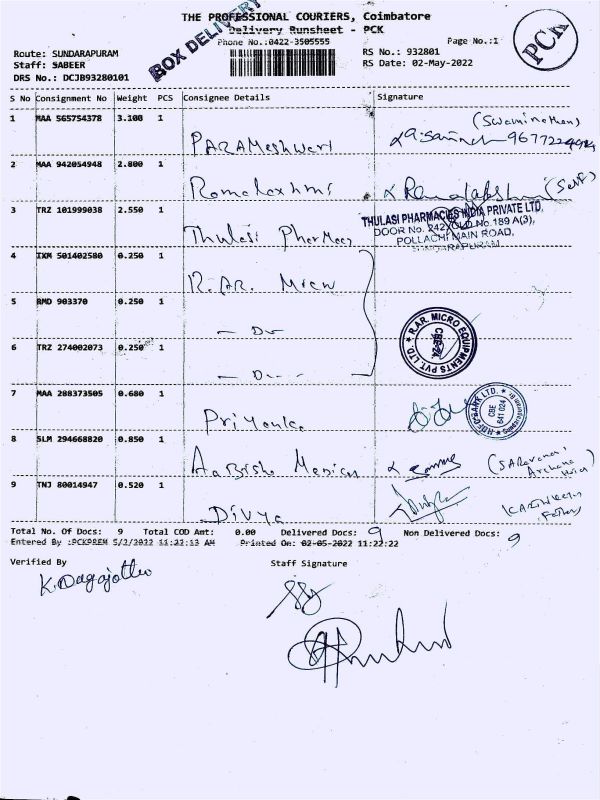 THE PROFESSIONAL COURIERS, Coimbatore
Delivery Runsheet - PCK
Phone No.:0422-3505555
Page No.:1
PCK
BOX DELIVERY
Route: SUNDARAPURAM
RS No.: 932801
Staff: SABEER
RS Date: 02-May-2022
DRS No.: DCJB93280101
S No Consignment No Weight PCS Consignee Details Signature
1 MAA 565754378 3.100 1 PARAMeshwari
(Swaminathan)
2 MAA 942054948 2.800 1 Romalaxhmi
(Self)
3 TRZ 101999038 2.550 1 Thulasi
THULASI PHARMACIES INDIA PRIVATE LTD,
DOOR No. 242, OLD No.189 A(3),
POLLACHI MAIN ROAD,
SUNDARAPURAM
4 IXM 501402580 0.250 1 R.AR. Micro
5 RMD 903370 0.250 1 — Do
R.AR. MICRO EQUIPMENTS PVT. LTD.
CBE-24.
6 TRZ 274002073 0.250 1 — Do — —
7 MAA 288373505 0.680 1 Priyanka
BANK LTD.
CBE
641 024
8 SLM 294668820 0.850 1
9 TNJ 80014947 0.520 1 Divya
Total No. Of Docs: 9 Total COD Amt: 0.00 Delivered Docs: 9 Non Delivered Docs: 9
Entered By :PCKPREM 5/2/2022 11:22:13 AM Printed On: 02-05-2022 11:22:22
Verified By
Staff Signature